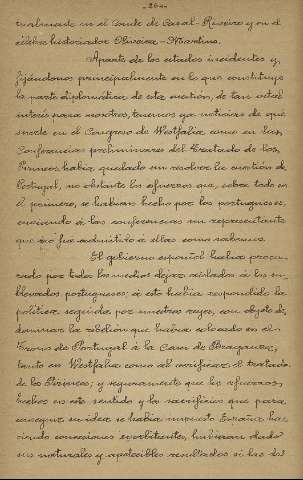 -26-
realmente en el Conde de Casal-Riveiro y en el
célebre historiador Oliveira-Martins.
Aparte de los citados incidentes y,
fijándonos principalmente en lo que constituye
la parte diplomática de esta cuestión, de tan actual
interés para nosotros, tenemos ya noticias de que
en el Congreso de Westfalia como en las
Conferencias preliminares del Tratado de los
Pirineos había quedado sin resolver la cuestión de
Portugal, no obstante los esfuerzos que, sobre todo en
el primero, se habían hecho por los portugueses,
enviando á las conferencias un representante
que no fué admitido á ellas como soberano.
El gobierno español había procu-
rado por todos los medios dejar aislados á los su-
blevados portugueses; á esto había respondido la
política seguida por nuestros reyes, con objeto de
dominar la rebelión que había colocado en el
Trono de Portugal á la Casa de Braganza,
tanto en Westfalia como al verificarse el tratado
de los Pirineos; y seguramente que los esfuerzos
hechos en este sentido y los sacrificios que para
conseguir su idea se había impuesto España ha-
ciendo concesiones exorbitantes, hubieran dado
sus naturales y apetecibles resultados si los do